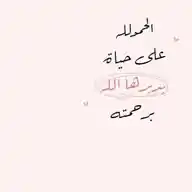 الحمدلله
على حياة
يديرها الله
برحمته